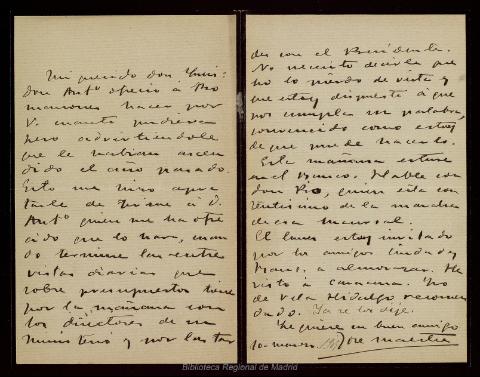 Mi querido don Luis:
don Antº ofreció á Ro
manones hacer por
V. cuanto pudiera
pero advirtiendole
que le habian ascen
dido el año pasado.
Esto me hizo
tarle de firme á D.
Antº quien me ha ofre
cido que lo hará, cuan
do termine las entre
vistas diarias que
sobre presupuestos tiene
por la mañana con
los directores de su
ministerio y por las tar
des con el Presidente.
No necesito decirle que
no lo pierdo de vista y
que estoy dispuesto á que
nos cumpla su palabra,
convencido como estoy
de que puede hacerlo.
Esta mañana estuve
en el Banco. Hable con
don Pio, quien está con
tentisimo de la marcha
de esa sucursal.
El lunes estoy invitado
por los amigos
á almorzar. He
visto á
de Vila Hidalgo recomen
dado. Ya se los dije.
Le quiere su buen amigo
10-marzo José Maestre
Biblioteca Regional de Madrid